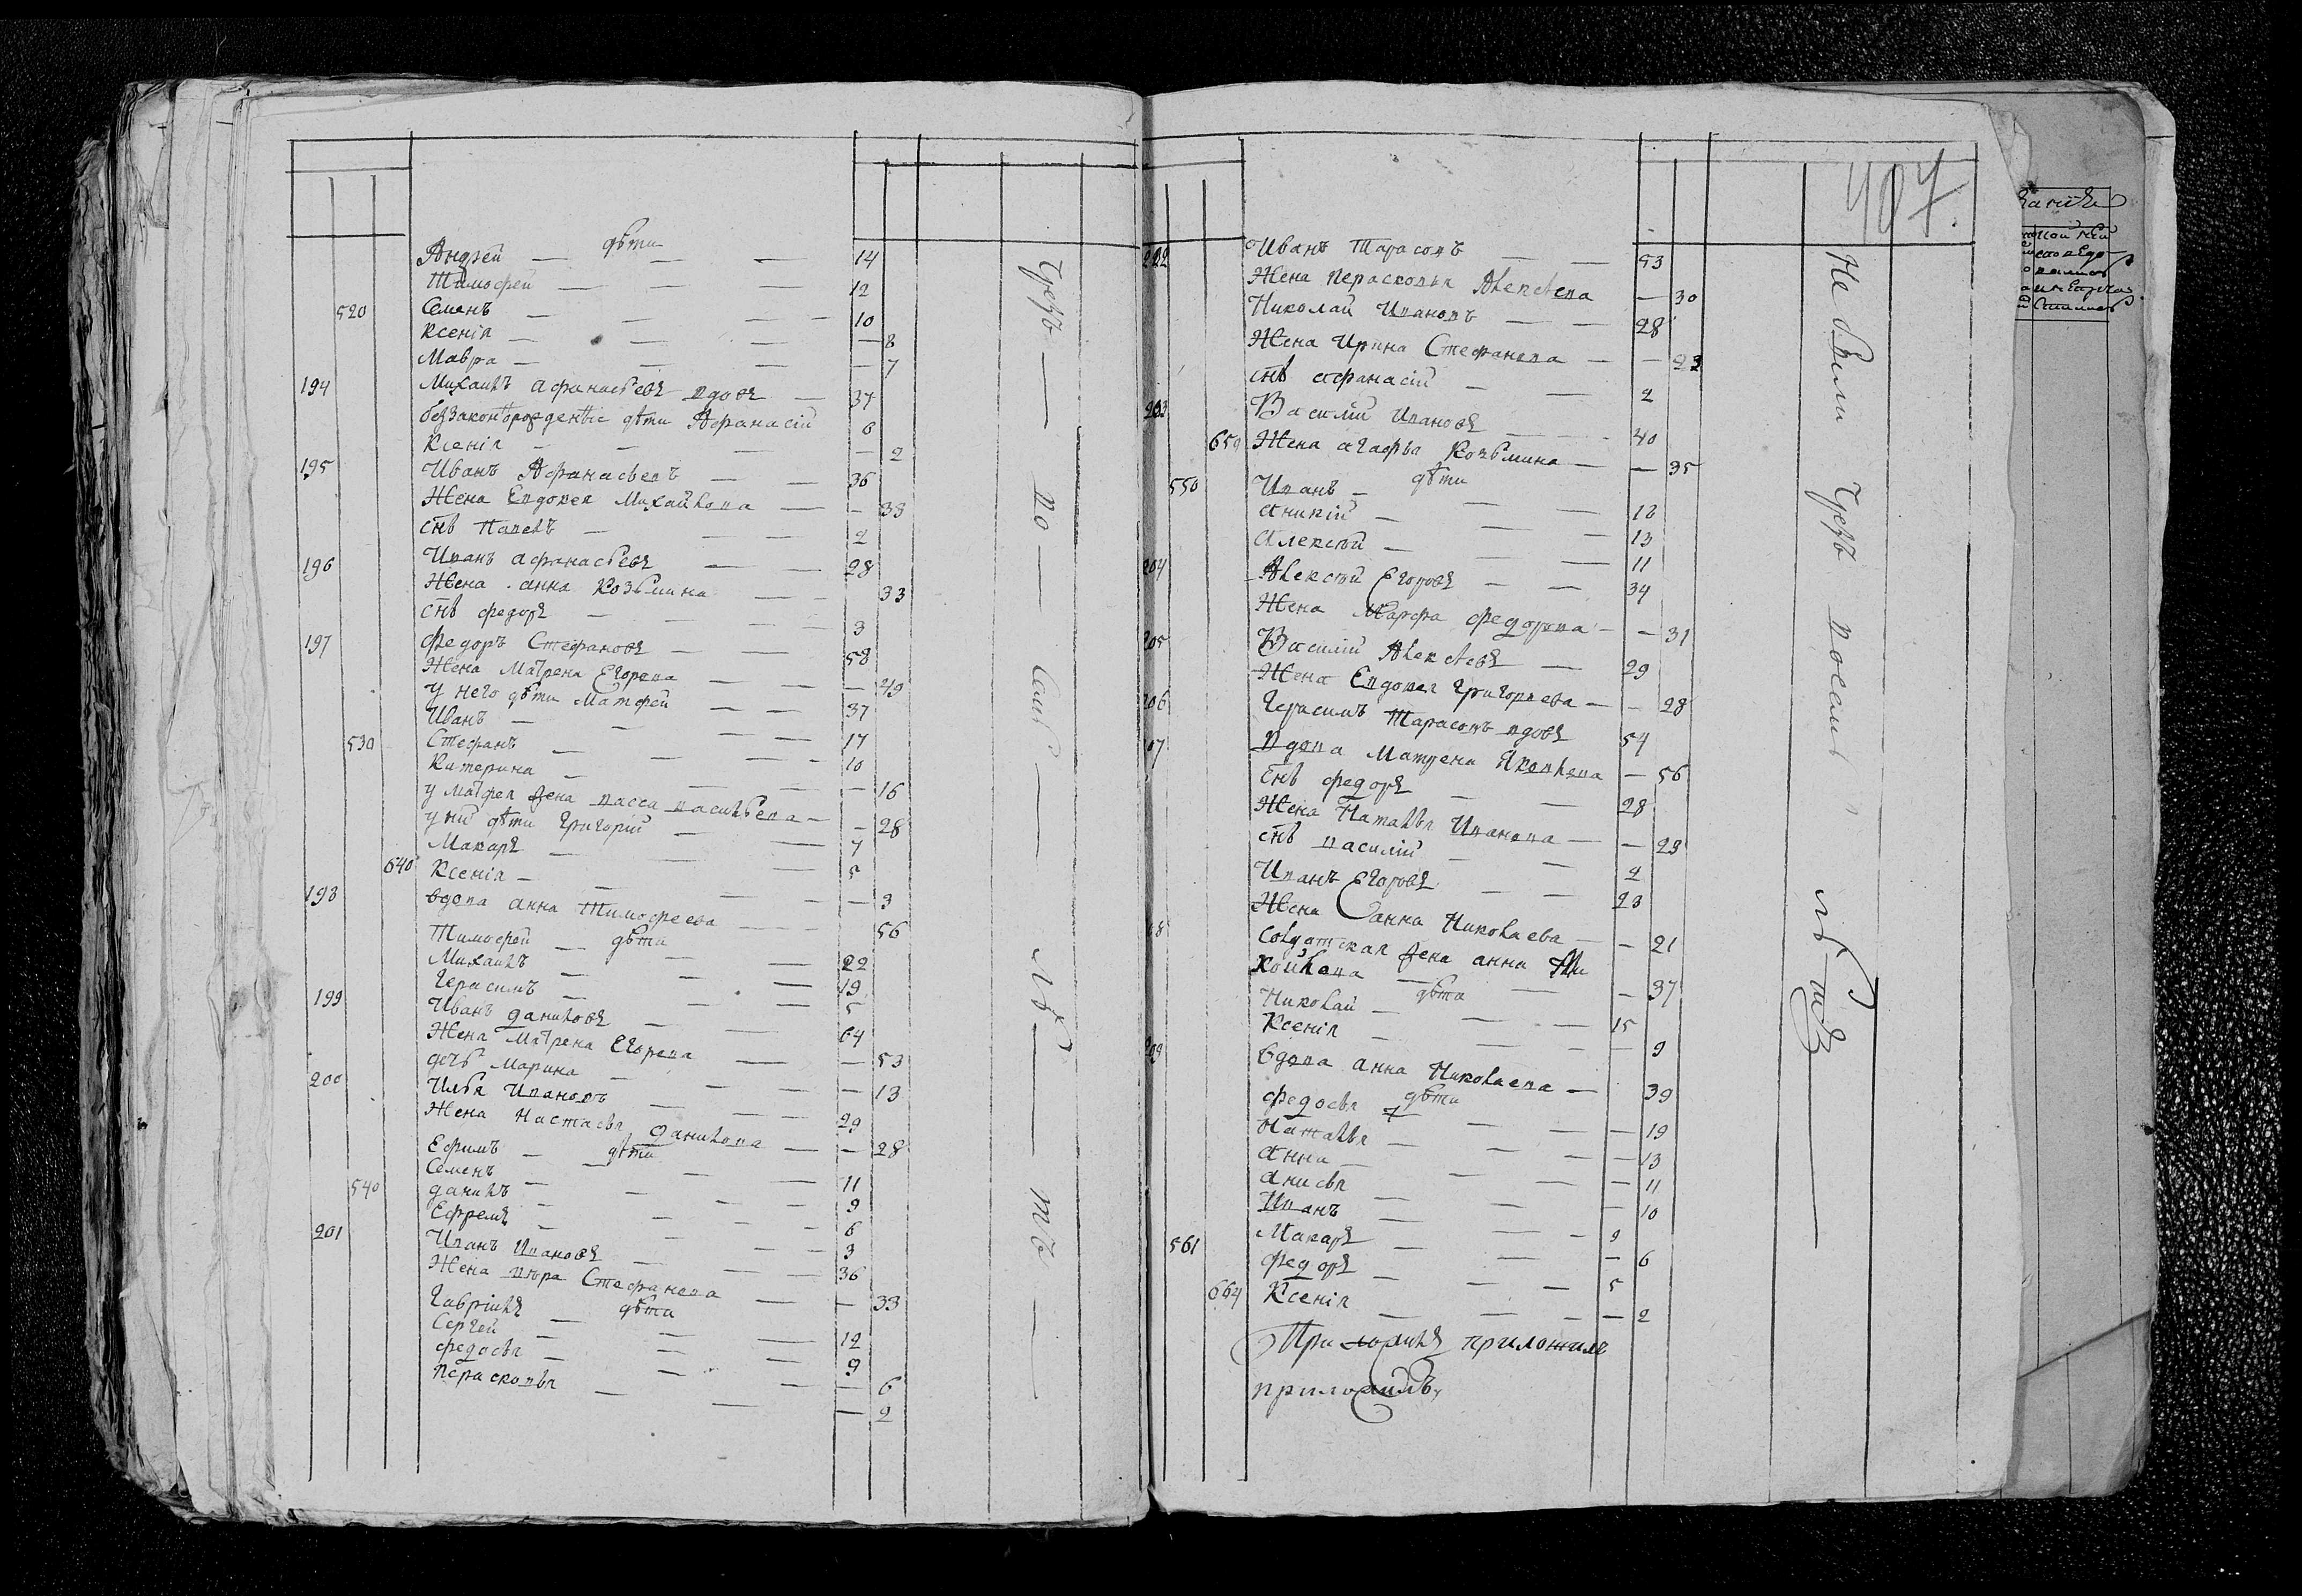 дѣти
Андрей — — — 14
Тимофей — — — 12
520 Семенъ — — — 10
Ксенія — — — — 8
Мавра — — — — 7
194 Михаилъ Афанасьевъ вдовъ — 37
беззаконнорожденныe дѣти Афанасій 6
Ксенія — — — — 2
195 Иванъ Афанасьевъ — — 36
Жена Евдокея Михайлова — — 33
снъ Павелъ — — — 2
196 Иванъ Афанасьевъ — — 28
Жена Анна Козьмина — — 33
снъ федоръ — — — 3
197 Федоръ Стефановъ — — 58
Жена Матрена Егорева — — — 49
у него дѣти Матфей — — 37
Иванъ — — — — 17
530 Стефанъ — — — — 10
Катерина — — — — 16
у Матфея жена васса васильева — — 28
у ни дѣти Григорій — — 7
Макаръ — — — 5
640 Ксенія — — — — 3
198 вдова анна Тимофеева — — 56
дѣти
Тимофей — — — 22
Михаилъ — — — 19
Герасимъ — — — 5
199 Иванъ даниловъ — — 64
Жена Матрена Егорева — — 53
дочь Марина — — — — 13
200 Илья Ивановъ — — — 29
Жена Настасья данилова — — 28
дѣти
Ефимъ — — — 11
Семенъ — — — 9
540 данилъ — — — 6
Ефремъ — — — 3
201 Иванъ Ивановъ — — 36
Жена вѣра Стефанова — — 33
дѣти
Гавріилъ — — — 12
Сергей — — — 9
федосья — — — — 6
Парасковья — — — — 2
Чрезъ — по — сию — лѣ — тъ —
407.
202 Иванъ Тарасовъ — — 53
Жена Перасковья Алексѣева — 30
Николай Ивановъ — — 28
Жена Ирина Стефанова — — 23
снъ афанасій — — 2
203 Василій Ивановъ — — 40
650 Жена агафья Козьмина — — 35
дѣти
550 Иванъ — — — 18
аникій — — — 13
алексѣй — — — 11
204 Алексѣй Егоровъ — — 34
Жена Марфа федорова — — 31
205 Василій Алексѣевъ — 29
Жена Евдокея григорьева — — 28
206 Герасимъ Тарасовъ вдовъ 54
207 вдова Матрена Яковлева — 56
снъ федоръ — — 28
Жена Наталья Иванова — — 23
снъ василій — — 2
Иванъ Егоровъ — — 23
Жена анна Николаева — — 21
208 солдатская жена анна Ми
хайлова — — — 37
дѣти
Николай — — — 15
Ксенія — — — — 9
209 вдова анна Николаева — 39
дѣти
федосья — — — 19
Наталья — — — — 13
анна — — — — 11
анисья — — — — 10
Иванъ — — — 9
561 Макаръ — — — 6
федоръ — — — 5
664 Ксенія — — — — 2
приложилъ
приложилъ,
Не были Чрезъ лѣтъ